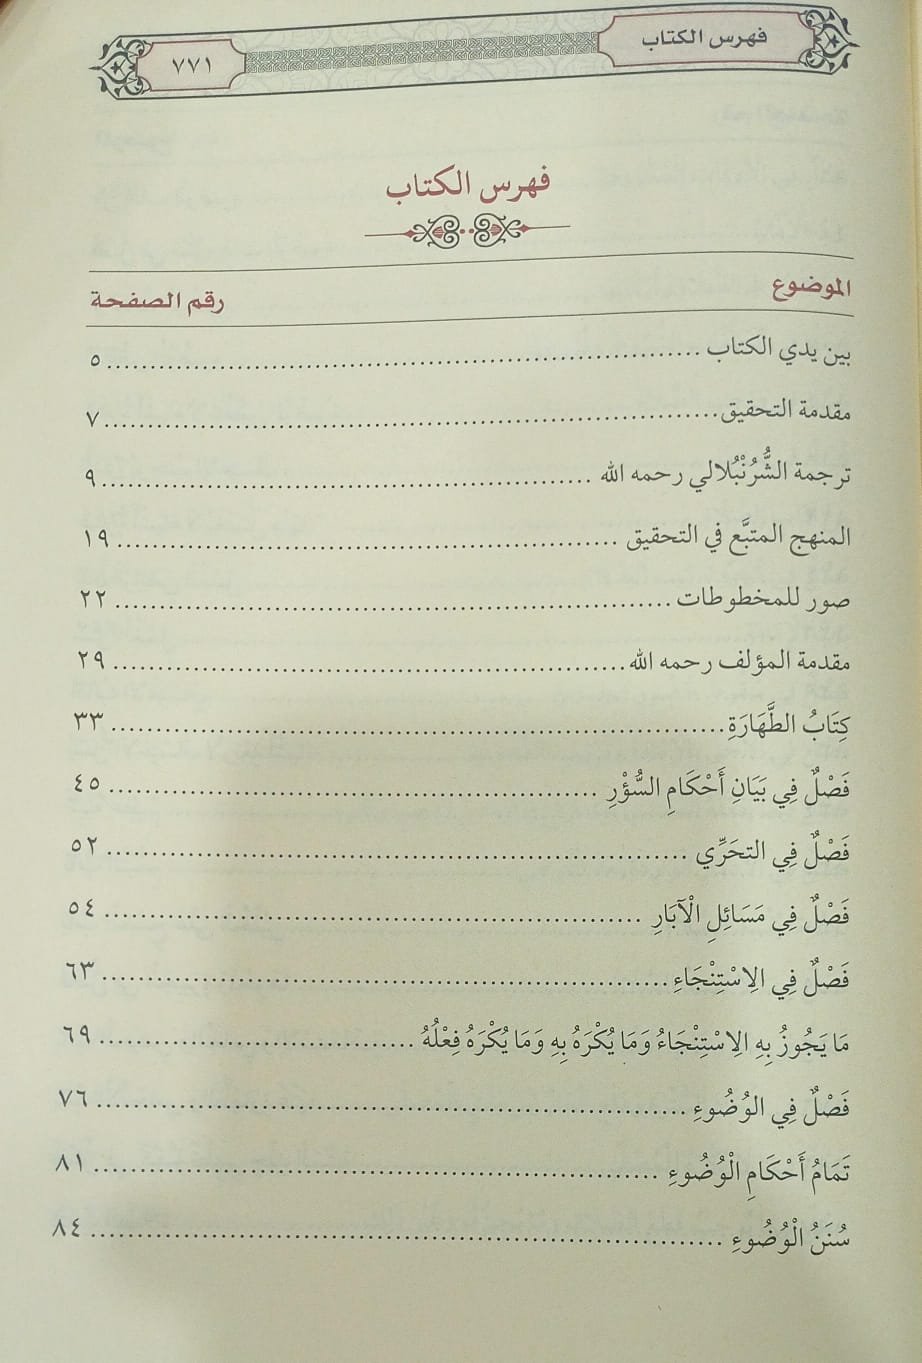 فهرس الكتاب ٧٧١
فهرس الكتاب
الموضوع رقم الصفحة
بين يدي الكتاب ٥
مقدمة التحقيق ٧
ترجمة الشُّرُنْبُلالي رحمه الله ٩
المنهج المتبَّع في التحقيق ١٩
صور للمخطوطات ٢٢
مقدمة المؤلف رحمه الله ٢٩
كِتَابُ الطَّهَارَةِ ٣٣
فَصْلٌ فِي بَيَانِ أَحْكَامِ السُّؤْرِ ٤٥
فَصْلٌ فِي التحَرِّي ٥٢
فَصْلٌ فِي مَسَائِلِ الْآبَارِ ٥٤
فَصْلٌ فِي الِاسْتِنْجَاءِ ٦٣
مَا يَجُوزُ بِهِ الِاسْتِنْجَاءُ وَمَا يُكْرَهُ بِهِ وَمَا يُكْرَهُ فِعْلُهُ ٦٩
فَصْلٌ فِي الوُضُوءِ ٧٦
تَمَامُ أَحْكَامِ الْوُضُوءِ ٨١
سُنَنُ الْوُضُوءِ ٨٤